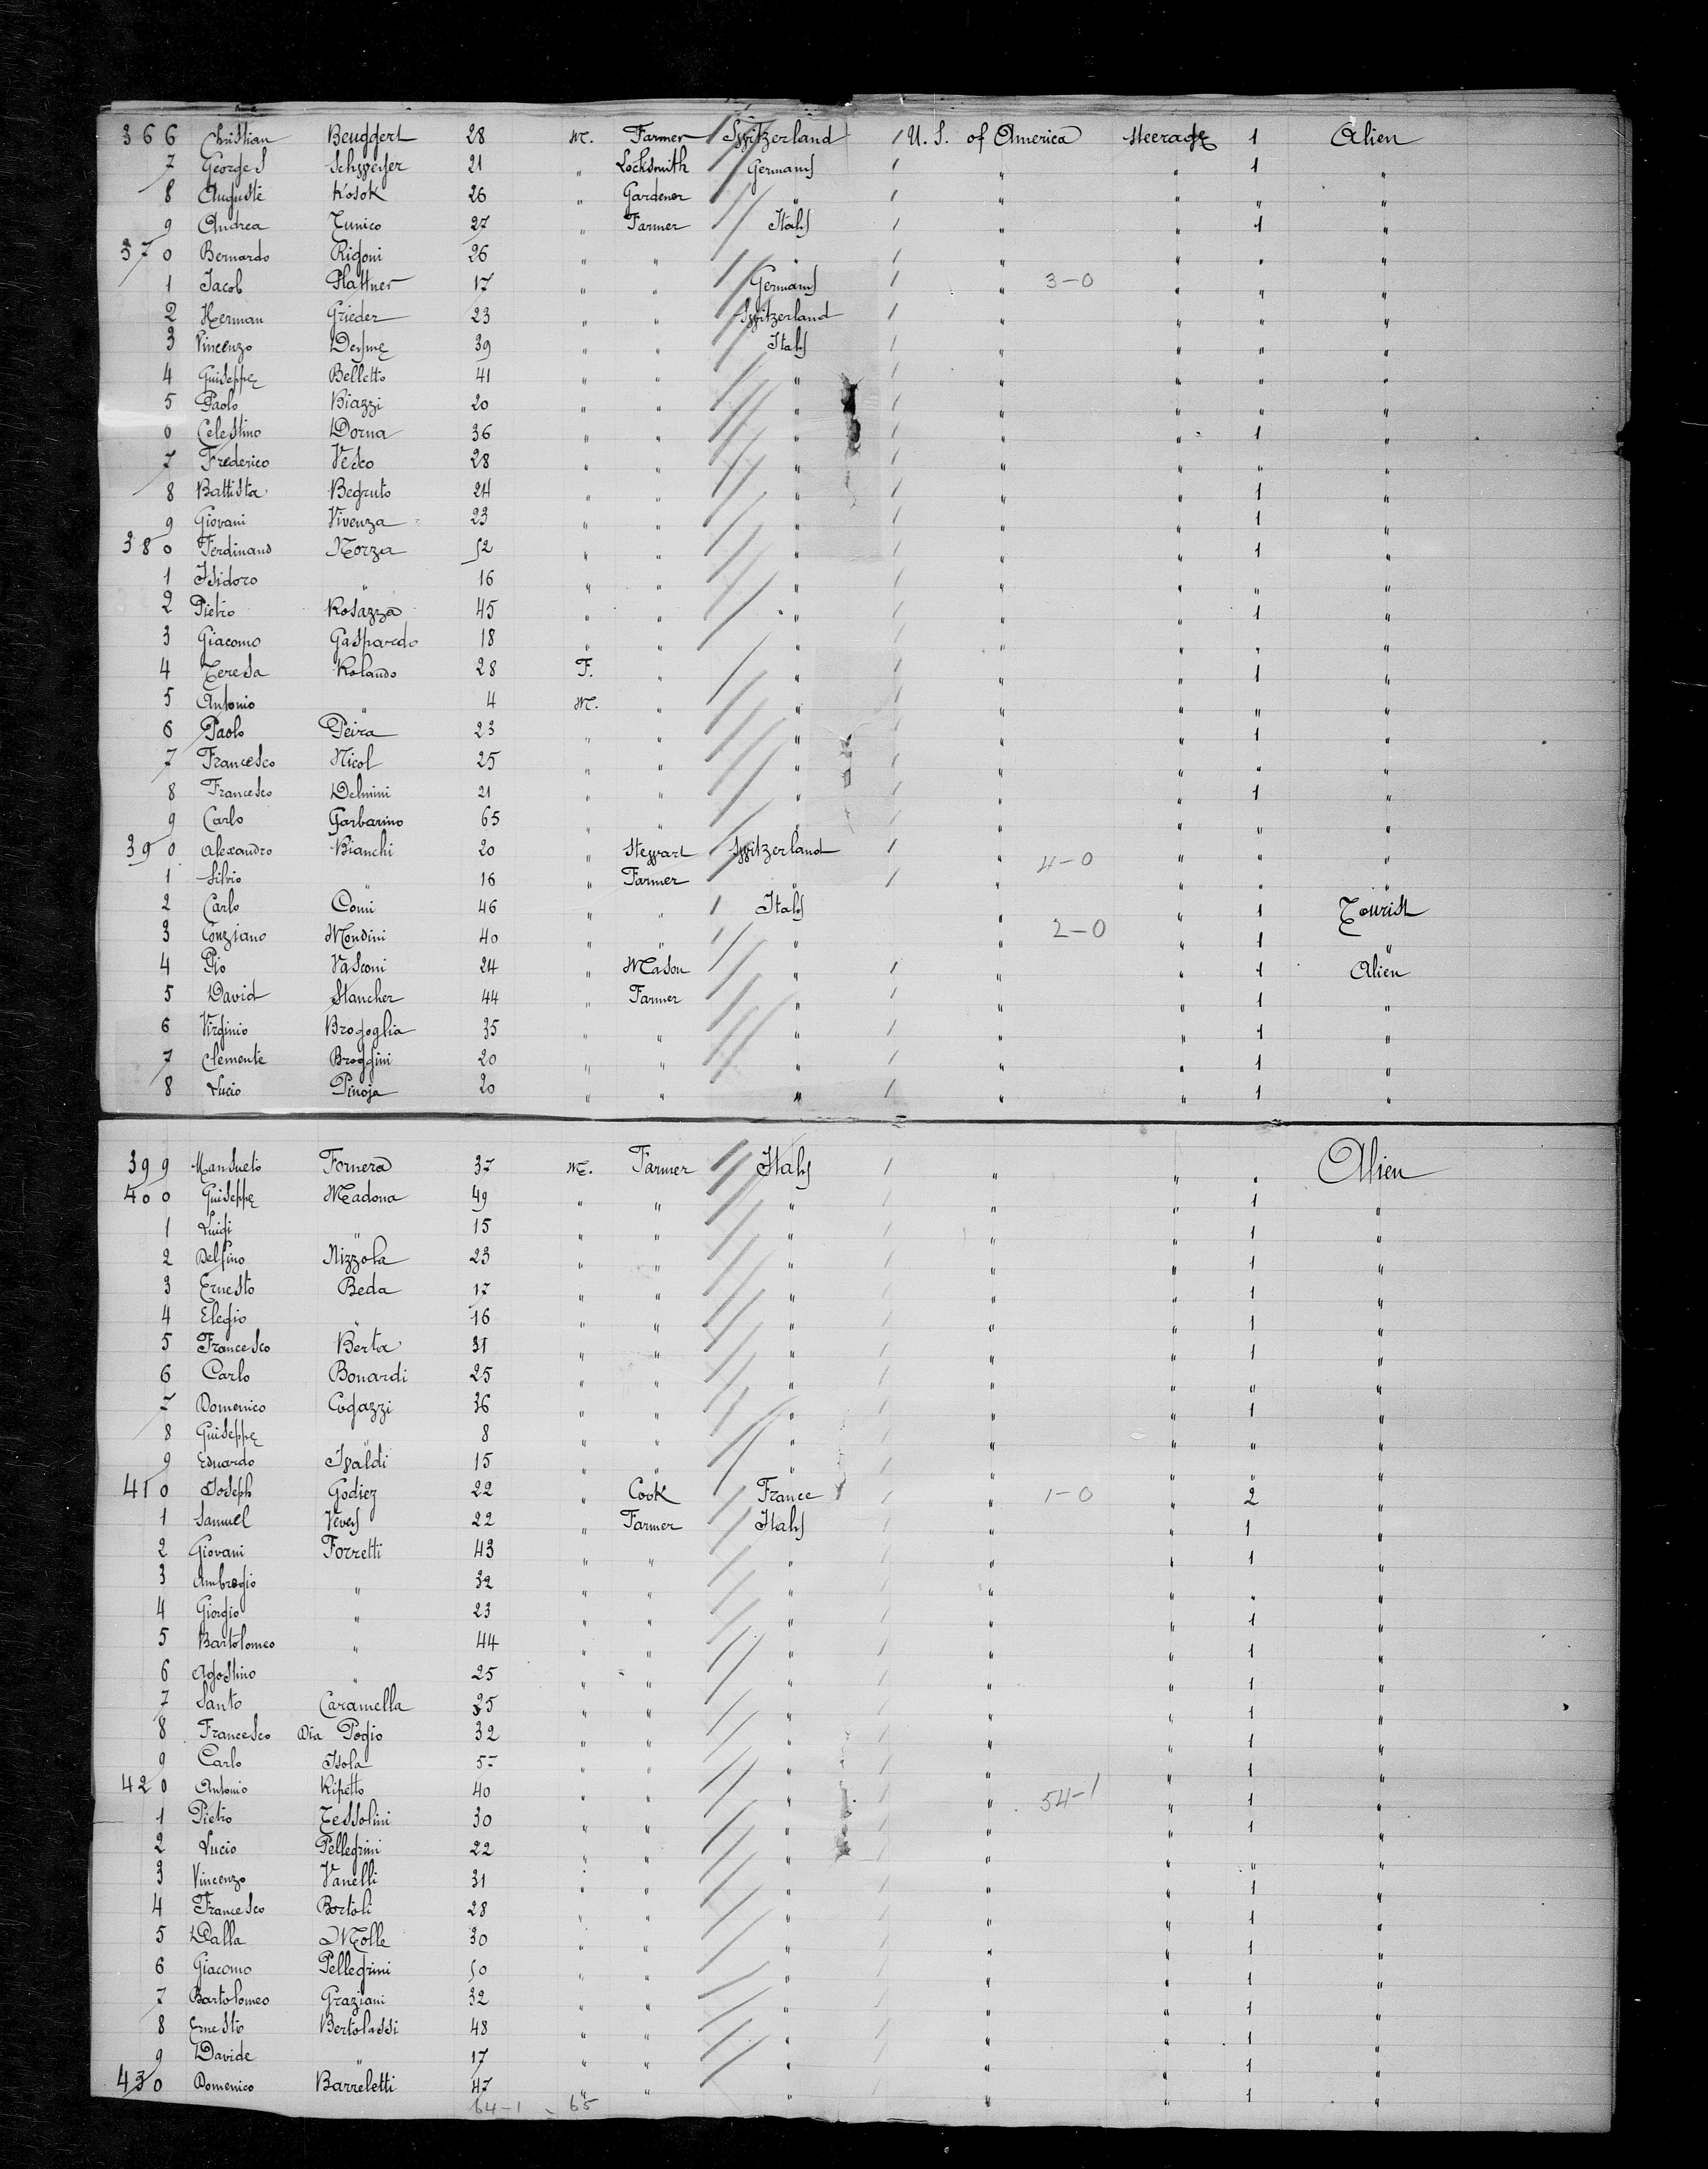 366 Christian Beuggert 28 M. Farmer Switzerland / U.S. of America Steerage 1 Alien
7 Georges Schweyer 21 " Locksmith Germany / " " 1 "
8 Auguste Kosok 26 " Gardener " / " " " "
9 Andrea Tunico 27 " Farmer Italy / " " 1 "
370 Bernardo Rigoni 26 " " " / " " " "
1 Jacob Plattner 17 " " Germany / " 3-0 " " "
2 Herman Grieder 23 " " Switzerland / " " " "
3 Vincenzo 39 " " Italy / " " " "
4 Guiseppe Belletto 41 " " " / " " " "
5 Paolo Biazzi 20 " " " / " " " "
6 Celestino Dorna 36 " " " / " " 1 "
7 Frederico Vesco 28 " " " / " " " "
8 Battista Begruto 24 " " " / " " 1 "
9 Giovani Vivenza 23 " " " / " " 1 "
380 Ferdinand Norza 52 " " " / " " 1 "
1 Isidoro " 16 " " " / " " " "
2 Pietro Rosazza 45 " " " / " " 1 "
3 Giacomo Gaspardo 18 " " " / " " " "
4 Teresa Rolando 28 F. " " / " " 1 "
5 Antonio " 4 M. " " / " " " "
6 Paolo Peira 23 " " " / " " 1 "
7 Francesco Nicol 25 " " " / " " " "
8 Francesco Delmini 21 " " " / " " 1 "
9 Carlo Garbarino 65 " " " / " " " "
390 Alexandro Bianchi 20 " Stewart Switzerland / " 4-0 " " "
1 Silvio " 16 " Farmer " / " " " "
2 Carlo Comi 46 " " Italy " " 1 Tourist
3 Conziano Mondini 40 " " " " 2-0 " 1 "
4 Pio Vasconi 24 " Mason " / " " 1 Alien
5 David Stancher 44 " Farmer " / " " 1 "
6 Virginio Brogoglia 35 " " " / " " 1 "
7 Clemente Broggini 20 " " " / " " 1 "
8 Lucio Pinoja 20 " " " / " " 1 "
399 Mansueto Fornera 37 M. Farmer Italy / " " " Alien
400 Guiseppe Madona 49 " " " / " " 1 "
1 Luigi " 15 " " " / " " 1 "
2 Delfino Nizzola 23 " " " / " " 1 "
3 Ernesto Beda 17 " " " / " " 1 "
4 Elegio " 16 " " " / " " 1 "
5 Francesco Berta 31 " " " / " " 1 "
6 Carlo Bonardi 25 " " " / " " " "
7 Domenico Cogazzi 36 " " " / " " 1 "
8 Guiseppe " 8 " " " / " " " "
9 Eduardo Isaldi 15 " " " / " " " "
410 Joseph Godiez 22 " Cook France / " 1-0 " 2 "
1 Samuel Vevey 22 " Farmer Italy / " " 1 "
2 Giovani Forretti 43 " " " / " " 1 "
3 Ambrogio " 32 " " " / " " " "
4 Giorgio " 23 " " " / " " 1 "
5 Bartolomeo " 44 " " " / " " 1 "
6 Agostino " 25 " " " / " " 1 "
7 Santo Caramella 25 " " " / " " 1 "
8 Francesco Dia Pogio 32 " " " / " " 1 "
9 Carlo Isola 57 " " " / " " 1 "
420 Antonio Ripetto 40 " " " / " 54-1 " 1 "
1 Pietro Tessolini 30 " " " / " " 1 "
2 Lucio Pellegrini 22 " " " / " " " "
3 Vincenzo Vanelli 31 " " " / " " 1 "
4 Francesco Bortoli 28 " " " / " " 1 "
5 Dalla Molle 30 " " " / " " 1 "
6 Giacomo Pellegrini 50 " " " / " " 1 "
7 Bartolomeo Graziani 32 " " " / " " 1 "
8 Ernesto Bertolassi 48 " " " / " " 1 "
9 Davide " 17 " " " / " " 1 "
430 Domenico Barreletti 47 " " " " " 1 "
64-1 - 65